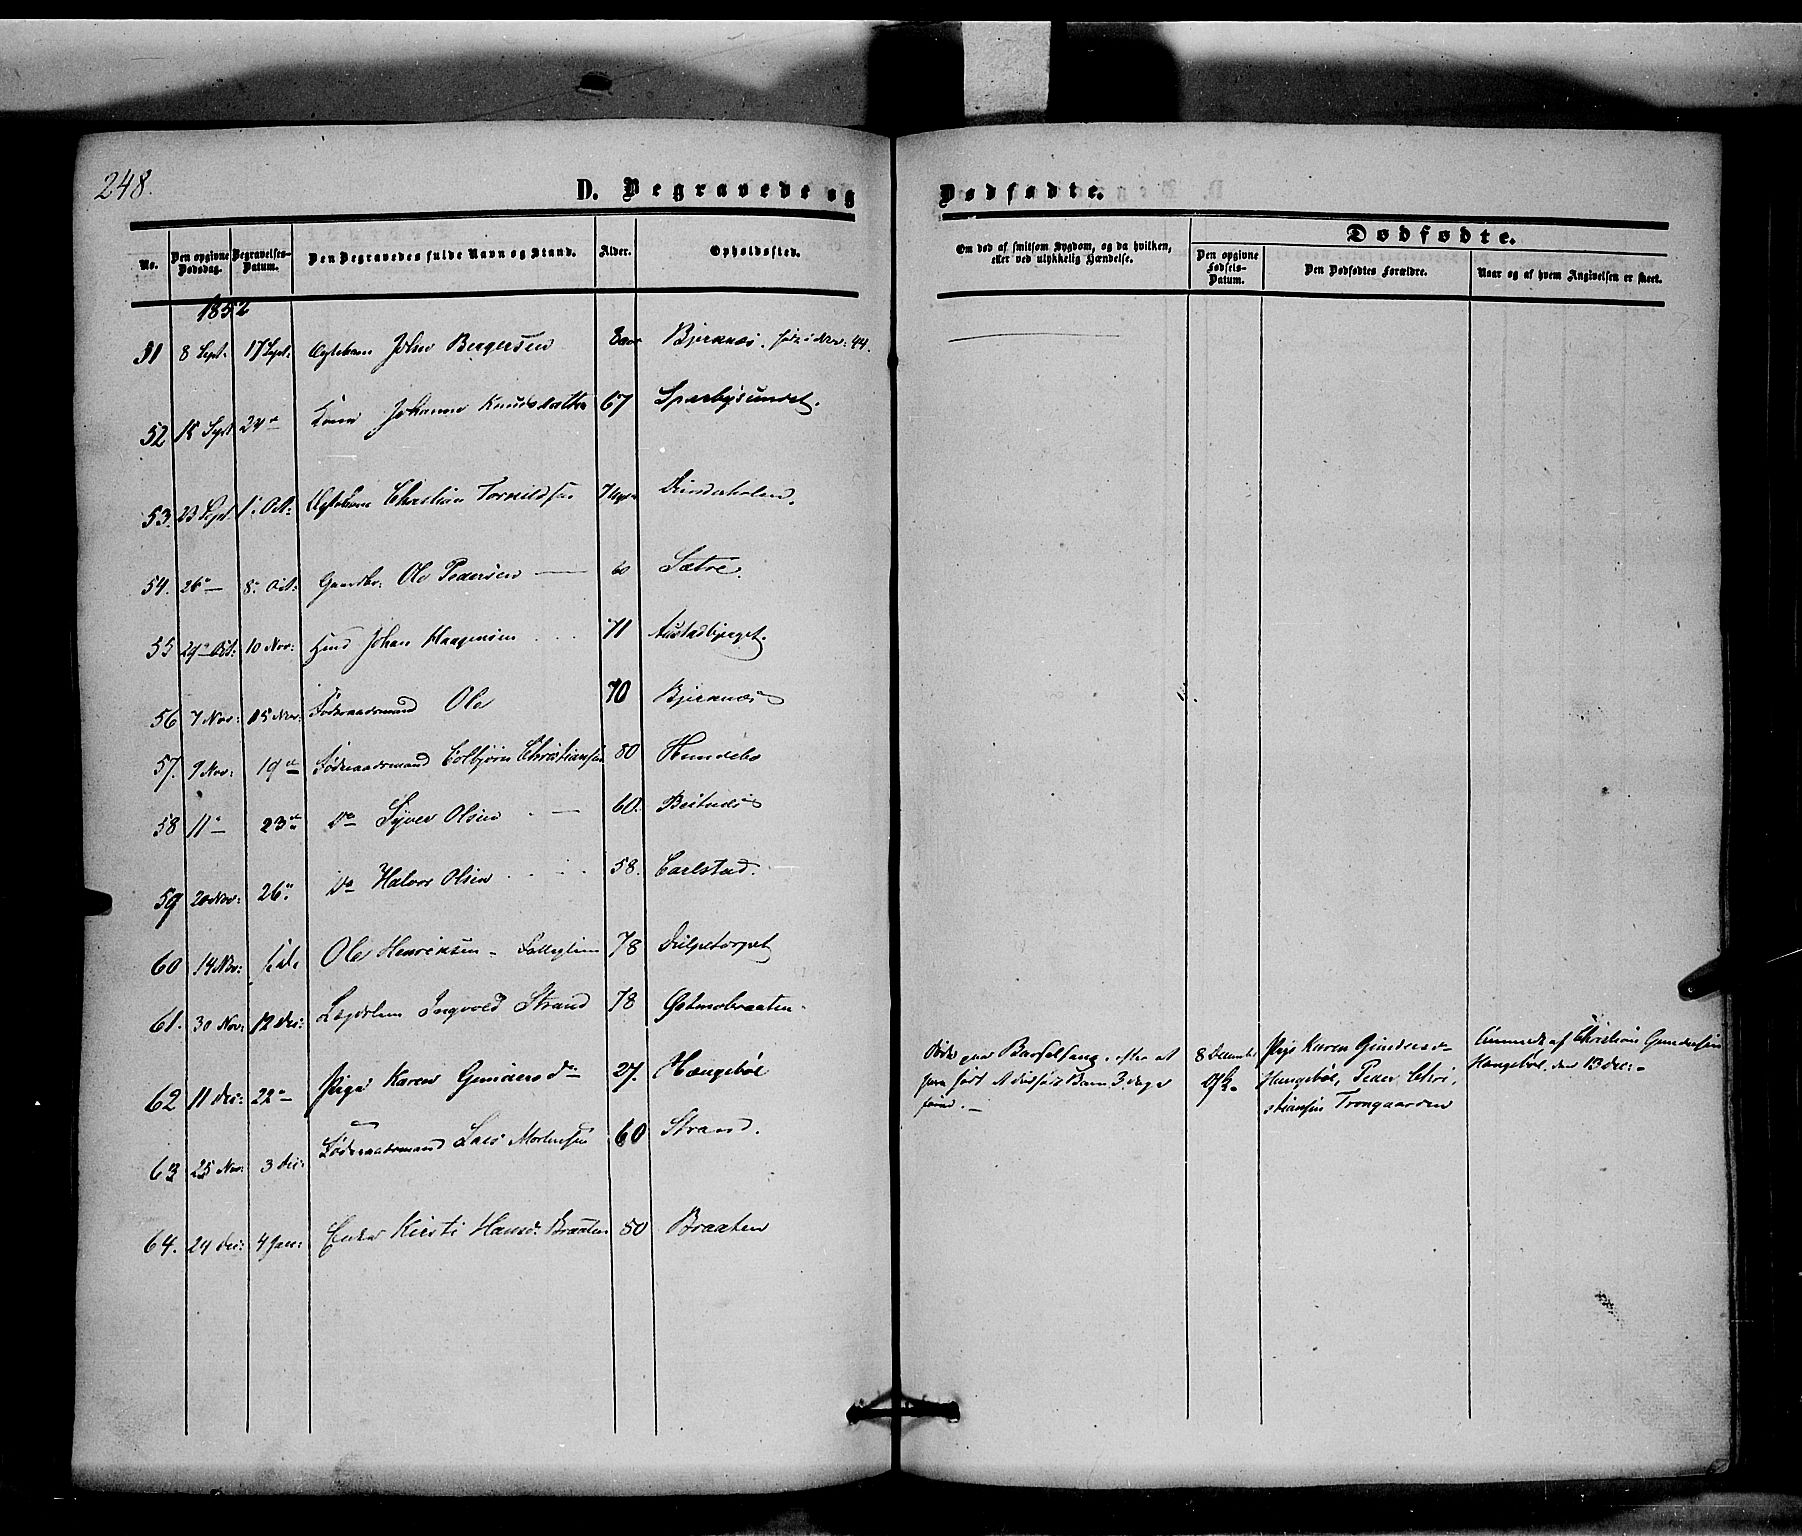 248.
D. Begravede og Dødfødte.
No. Den opgivne Dødsdag. Begravelses-Datum. Den Begravedes fulde Navn og Stand. Alder. Opholdssted.
Om død af smitsom Sygdom, og da hvilken, eller ved ulykkelig Hændelse.
Dødfødte.
Den opgivne Fødsels-Datum. Den Dødfødtes Forældre. Naar og af hvem Angivelsen er skeet.
1852
51 8 Sept: 17 Sept: Ægtebarn John Bergersen 8 aar Bjerknæs. 44.
52 15 Sept 24 Kone Johanne Knudsdatter 67 Sparbysundet.
53. 23 Sept 1. Oct: Ægtebarn Christian 7 Uger
54. 26 — 8. Oct: Gaardbr. Ole Pedersen — 60 Sætre.
55 29 Oct: 10 Nov: Johan Haagensen 71
56 7 Nov: 15 Nov: Føderaadsmand Ole 70 Bjerknæs
57. 9 Nov: 19 Føderaadsmand Colbjørn Christiansen 80 Hundebo
58 11 — 23 Do Syver Olsen — 60.
59 20 Nov: 26 Do Halvor Olsen 58. Carlstad.
60 14 Nov: Ole Henriksen - Fattiglem 78
61. 30 Nov: 12 Dec: Lægdslem Ingvold Strand 78 Østmobraaten
62 11 Dec: 22 — Pige Karen Gundersd 27. Hængebøl
Døde paa Barselseng, efter at 8 December Pige Karen Gundersd Anmeldt af Christian Gundersen
have født et dødfødt Barn 3 dage Hængebøl, Peder Chri- Hængebøl, den 13 Dec: -
forud. - stiansen Trongaarden
63 25 Nov: 3 Dec: Føderaadsmand Lars Mortensen 60 Strand.
64. 24 Dec: 4 Jan: Enke Kirsti Hansd: Braaten 80 Braaten